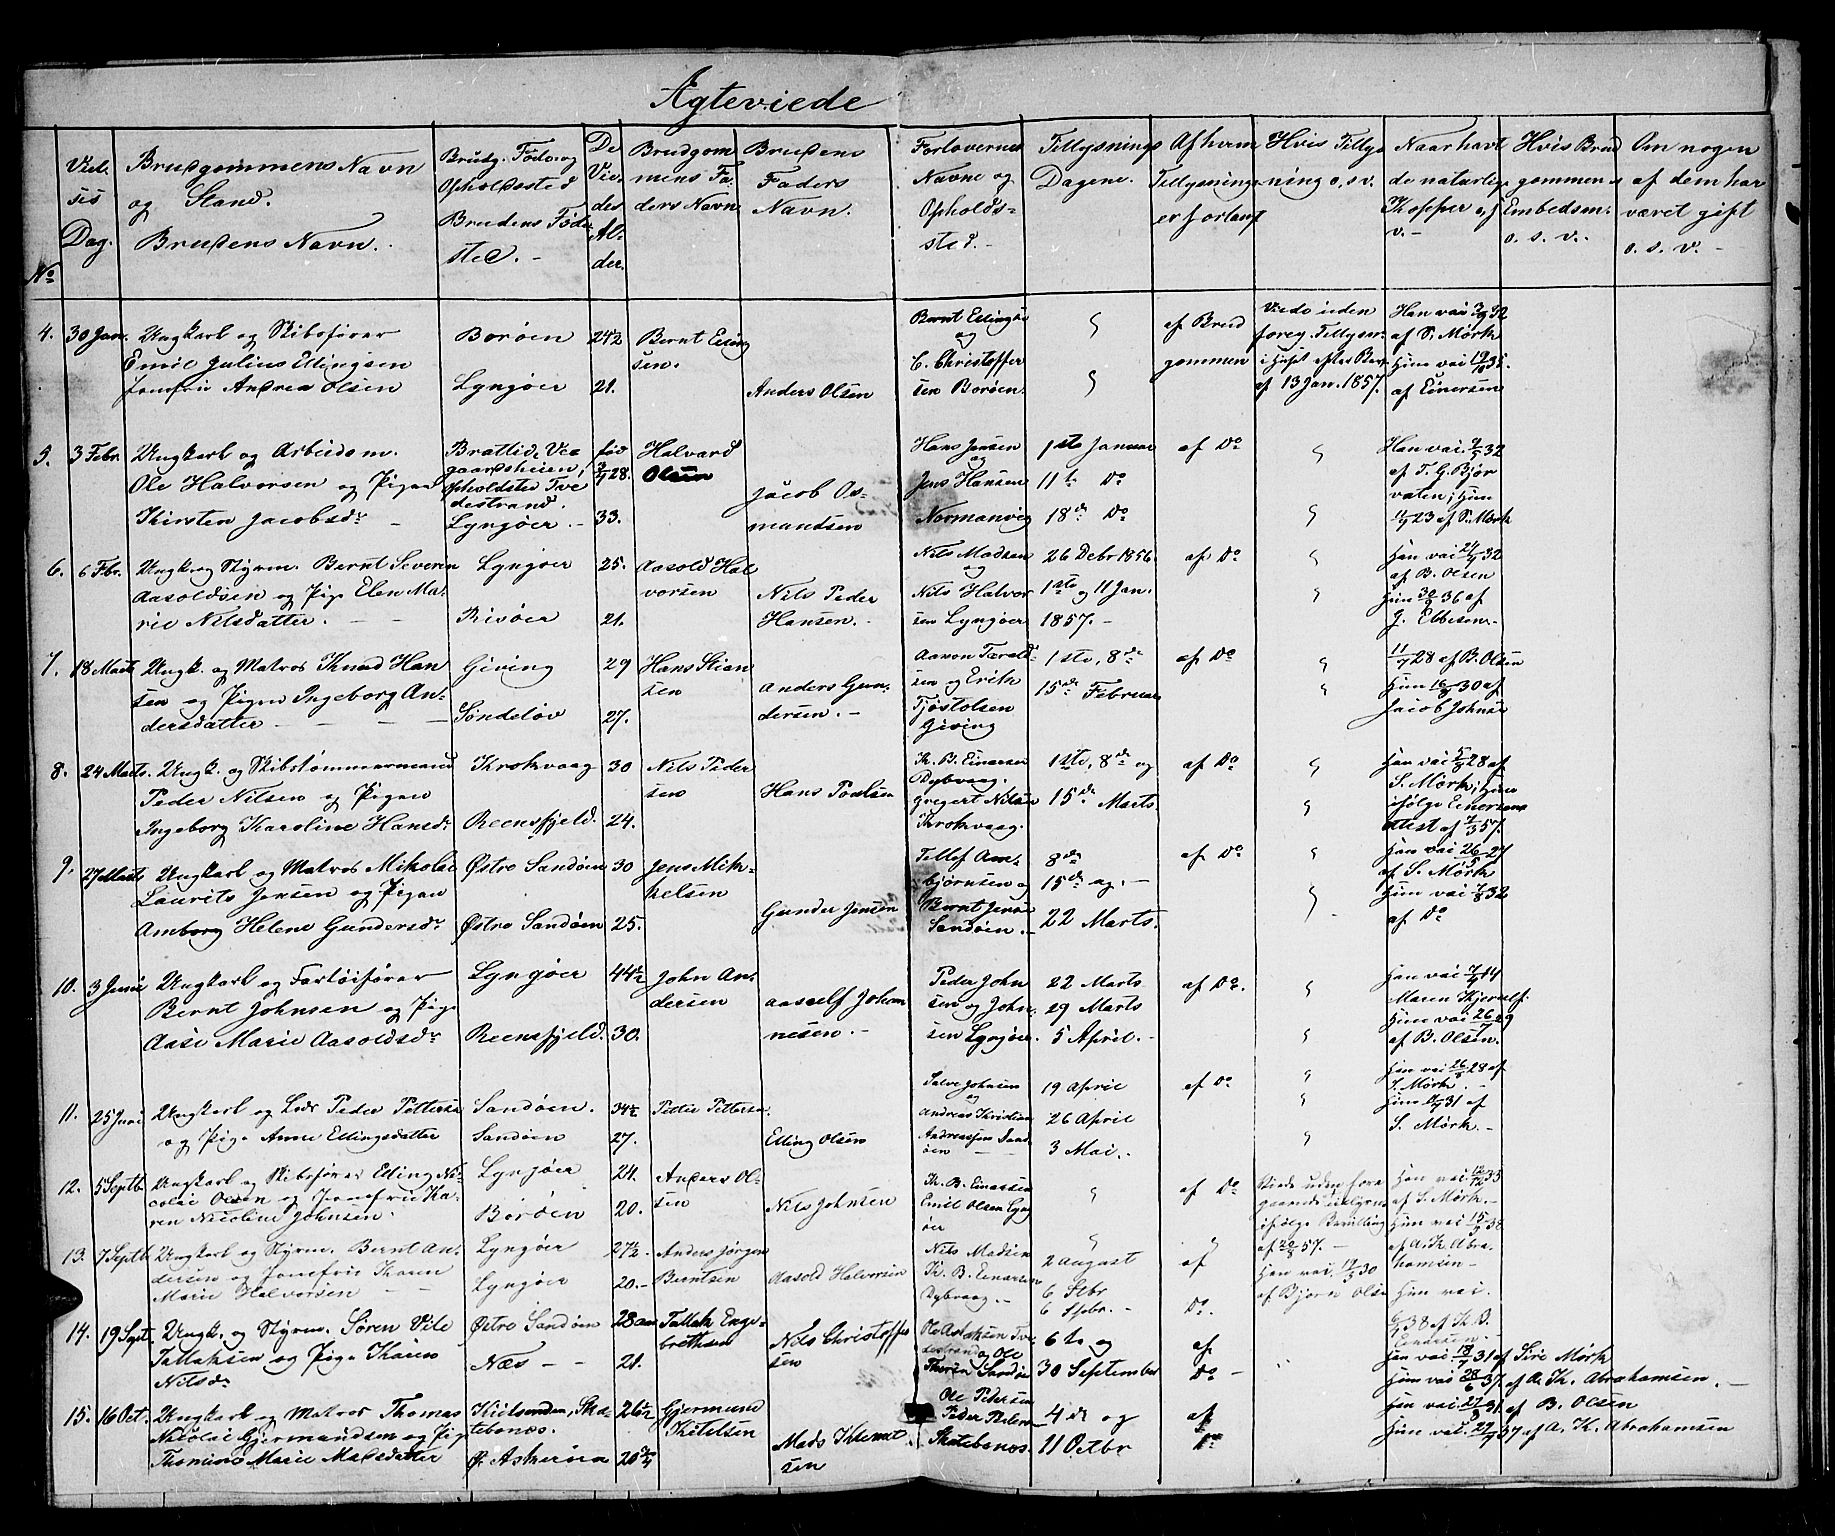 Ægteviede
No
Viel-
ses
Dag.
Brudgommens Navn
og Stand.
Brudens Navn.
Brudg. Føde og
Opholdssted
Brudens Føde-
sted. -
De
Vie-
des
Al-
der.
Brudgom
mens Fa-
ders Navn
Brudens
Faders
Navn.
Forlovernes
Navne og
Opholds-
sted. -
Tillysnings
Dagene.
Af hvem
Tillysninge
er forlangt
Hvis Tillys
ning o, s v.
Naar havt
de naturlige
Kopper o. s
v. -
Hvis Brud
gommens
Embedsm.
o. s. v. -
Om nogen
af dem har
været gift
o. s. v. -
4. 30 Jan.
Ungkarl og Skibsfører
Emil Julius Ellingsen
Jomfru Andrea Olsen
Borøen
Lyngøer
24½
21.
Bernt Elling
sen.
Anders Olsen
Bernt Ellingsen
og
C. Christoffer
sen Borøen.
af Brud
gommen
Viede uden
foreg. Tillysn.
i Huset efter Bev.
af 13 Jan. 1857.
Han vac 3/9 32
af S. Mørk
Hun vac 19/8 35.
af Einersen
5. 3 Febr.
Ungkarl og Arbeidsm.
Ole Halvorsen og Pigen
Kirsten Jacobsdr -
Brattlid, Ve
gaardsheien,
Opholdsted Tve
destrand.
Lyngøer. -
fød
3/7 28.
33.
Halvard
Olsen
Jacob Os-
mundsen
Hans Jensen
og
Jens Hansen
Normanvig
1ste Januar
11te Do
18de Do
af Do
Han vac. 9/7 32
af T. G. Bjør
vaten; Hun
11/7 23 af S. Mørk
6. 6 Fbr.
Ungk og Styrm. Bernt Severin
Aasoldsen og Pige Elen Ma-
rie Nilsdatter. - -
Lyngøer
Risøer
25.
21.
Aasold Hal
vorsen
Nils Peder
Hansen. -
Nils Madsen
og
Nils Halvor
sen Lyngøer
26 Debr 1856.
1ste og 11 Jan.
1857. -
af Do
Han vac 24/9 32
af B. Olsen
Hun 30/8 36 af
J. Ebbesen. -
7. 18 Marts
Ungk. og Matros Knud Han
sen og Pigen Ingeborg An-
dersdatter - - - -
Giving
Søndeløv
29
27.
Hans Stian
sen
Anders Gun-
dersen. -
Aaron Tarald-
sen og Erik
Tjøstolsen
Giving
1ste, 8de
15de Februar
af Do
11/7 28 af B. Olsen
Hun 16/9 30 af
Jacob Johnse
8. 24 Marts.
Ungk. og Skibstømmermand
Peder Nilsen og Pigen
Ingeborg Karoline Hansdr
Krokvaag
Reensfjeld.
30
24.
Nils Peder
sen
Hans Poulsen
K. B. Einersen
Dybvaag.
Gregert Nilsen
Krokvaag.
1ste, 8de og
15de Marts
af Do
Han vac 5/9 28 af
S. Mørk; Hun
ifølge Einersens
Attest af 7/3 57.
9. 27 Marts
Ungkarl og Matros Mikolai
Laurits Jensen og Pigen
Amborg Helene Gundersdr
Østre Sandøen
Østre Sandøen
30
25.
Jens Mik-
kelsen
Gunder Jensen
Tellef Am-
bjørnsen og
Bernt Jens
Sandøen. -
8de
15de og. -
22 Marts.
af Do
Han vac 26/5 27
af S. Mørk
Hun vac 7/8 32
af Do
10. 3 Juni
Ungkarl og Fartøifører
Bernt Johnsen og Pige
Aase Marie Aasoldsdr
Lyngøer
Reensfjeld.
44½
30.
John An-
dersen
Aasulf Johan
nesen. -
Peder John
sen og John-
sen Lyngøer.
22 Marts
29 Marts
5 April. -
af Do.
Han vac 7/9 14
Maren Kjerulf.
Hun vac 26/7 29
af B. Olsen.
11. 25 Juni
Ungkarl og Lods Peder Petterse
og Pige Anne Ellingsdatter
Sandøen.
Sandøen
34½
27.
Petter Petterse.
Elling Olsen
Salve Johnsen
og
Andreas Kristian
Andreassen Sand
øen
19 April
26 April
3 Mai. -
af Do
Han vac 26/8 28 af
S. Mørk. -
Hun 31 af
S. Mørk. -
12. 5 Septb.
Ungkarl og Skibsfører Elling Ni-
colai Olsen og Jomfru Ka-
ren Nicoline Johnsen.
Lyngøer
Borøen
24.
20.
Anders Ol-
sen
Nils Johnsen
K. B. Einersen
Emil Olsen Lyng
øer
af Do
Viede uden fore
gaaende Tillysn.
ifølge Bevilling
af 22/8 57. -
Han vac 12/12 33
af S. Mørk. -
Hun vac 15/9 38
af A. K. Abra-
hamsen -
13. 7 Septb
Ungkarl og Styrm. Bernt An-
dersen og Jomfru Karen
Marie Halvorsen -
Lyngøer
Lyngøer
27½.
20. -
Anders Jørgen
Berntsen
Aasold Halvorsen
Nils Madsen
K. B. Einersen
Dybvaag. -
2 August
6 Stbr
6 Sptbr. -
af
Do.
Han vac. 17/9 30
af Bjørn Olse
Hun vac.
38 af K. B.
Einersen. -
14. 19 Sept.
Ungk. og Styrm. Søren Vile
Tallaksen og Pige Karen
Nilsdr
Østre Sandøen
Næs - -
28 aar
21.
Tallak Enge-
brethsen
Nils Christoffer
sen
Ole Aslaksen Tve
destrand og Ole
Thoren Sandøe
6te og
30 September
af
Do -
Han vac 18/7 31 af Sire Mørk
Hun vac 28/6 37. af A. K. Abrahamsen. -
15. 16 Oct.
Ungkarl og Matros Thomas
Nicolai Gjermundsen og Pig
Thomine Marie Madsdatter
Kidlsunden, Ska-
tebonæs.
Ø. Askerøen
26½
20¾
Gjermund
Ketelsen
Mads Klemet
sen
Ole Pedersen
Peder Pedersen
Skatebonæs.
4de og
11 Octbr
af
Do
Han vac. 27/8 31 af B. Olsen
Hun vac. 22/9 37 af A. K. Abrahamsen